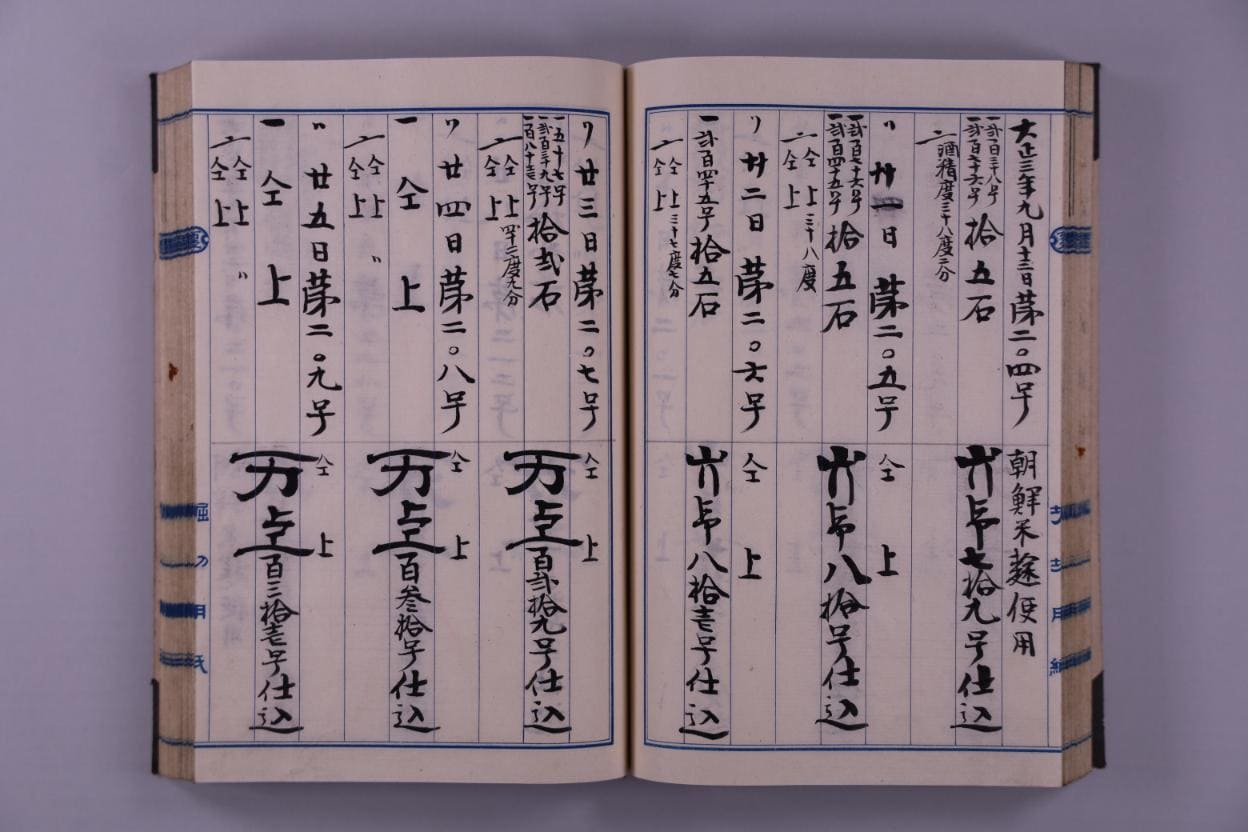 大正三年九月廿一日第二〇四号
一弐百三十八号
一弐百七十六号
拾五石
一酒精度三十八度二分
朝鮮米麹使用
七拾九号仕込
〃 廿一日第二〇五号
一弐百七十六号
一弐百四十五号
拾五石
一仝上三十八度
一仝上
仝上
八拾号仕込
〃 廿二日第二〇六号
一弐百四十五号拾五石
一仝上三十七度七分
一仝上
仝上
八拾壱号仕込
〃 廿三日第二〇七号
一五十七号
一弐百三十九号
一百八十壱号
拾弐石
一仝上四十二度九分
一仝上
仝上
百弐拾九号仕込
〃 廿四日第二〇八号
一仝上
一仝上〃
一仝上
仝上
百参拾号仕込
〃 廿五日第二〇九号
一仝上
一仝上〃
一仝上
仝上
百三拾壱号仕込